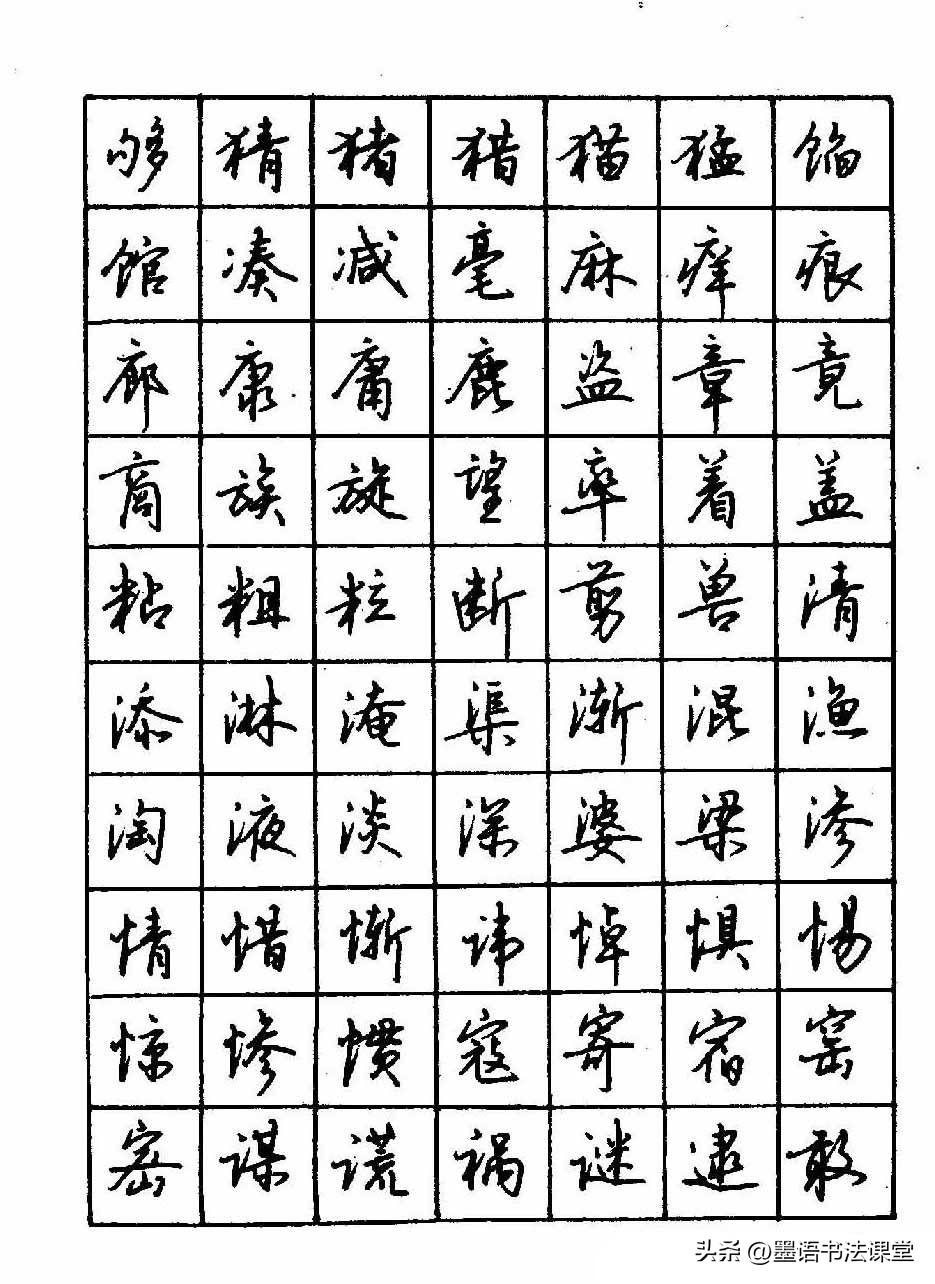 够猜猪猎猫猛馅
馆凑减毫麻痒痕
廊康庸鹿盗章竟
商族旋望率着盖
粘粗粒断剪兽清
添淋淹渠渐混渔
淘液淡深婆梁渗
情惜惭讳悼惧惕
惊惨惯寇寄宿窑
密谋谎祸谜逮敢
头条 @墨语书法课堂